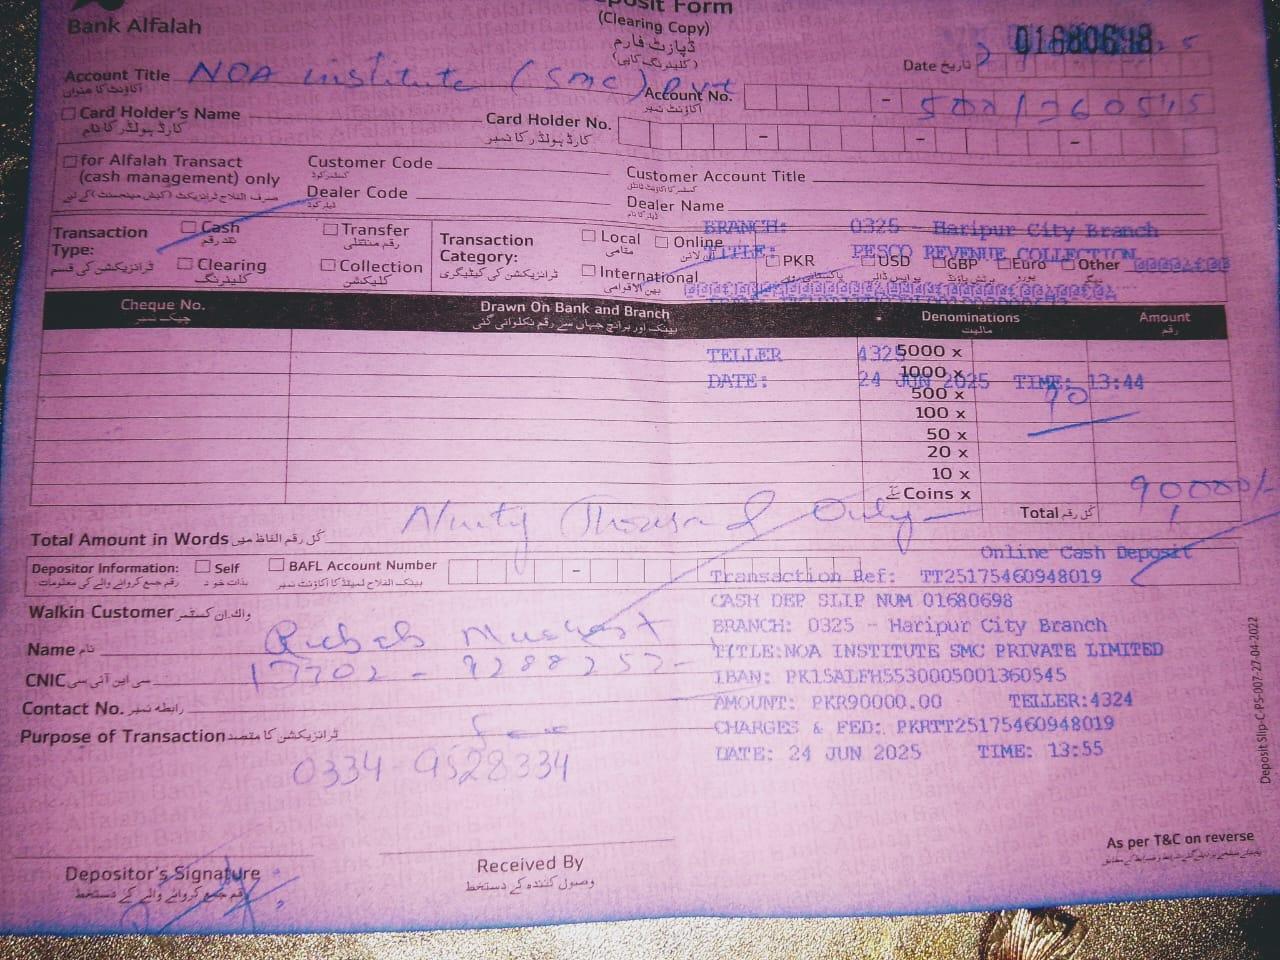 Bank Alfalah
posit Form
(Clearing Copy)
ڈپازٹ فارم
(کلیئرنگ کاپی)
01680698
Date تاریخ
Account Title NOA institute (SMC) Pvt
اکاؤنٹ کا عنوان
Account No. - 5001360545
اکاؤنٹ نمبر
Card Holder's Name
کارڈ ہولڈر کا نام
Card Holder No.
کارڈ ہولڈر کا نمبر
for Alfalah Transact
(cash management) only
Customer Code
Customer Account Title
Dealer Code
Dealer Name
BRANCH: 0325 - Haripur City Branch
TITLE: PESCO REVENUE COLLECTION
Transaction Type:
ٹرانزیکشن کی قسم
Cash
نقد رقم
Transfer
رقم منتقلی
Clearing
کلیئرنگ
Collection
کلیکشن
Transaction Category:
ٹرانزیکشن کی کیٹیگری
Local
مقامی
Online
آن لائن
International
بین الاقوامی
PKR
USD
GBP
Euro
Other
Cheque No.
چیک نمبر
Drawn On Bank and Branch
بینک اور برانچ جہاں سے رقم نکلوائی گئی
Denominations
مالیت
Amount
رقم
TELLER 4325
DATE: 24 JUN 2025 TIME: 13:44
5000 x
1000 x
500 x
100 x
50 x
20 x
10 x
Coins x
90
90000/-
Total کل رقم
Total Amount in Words کل رقم الفاظ میں Ninety Thousand Only
Depositor Information:
رقم جمع کروانے والے کی معلومات:
Self
بذات خود
BAFL Account Number
بینک الفلاح لمیٹڈ کا اکاؤنٹ نمبر
Online Cash Deposit
Transaction Ref: TT25175460948019
CASH DEP SLIP NUM 01680698
BRANCH: 0325 - Haripur City Branch
TITLE:NOA INSTITUTE SMC PRIVATE LIMITED
IBAN: PK15ALFH5530005001360545
AMOUNT: PKR90000.00 TELLER:4324
CHARGES & FED: PKRTT25175460948019
DATE: 24 JUN 2025 TIME: 13:55
Walkin Customer واک ان کسٹمر
Name نام
CNIC سی این آئی سی 17702 - 9288257-
Contact No. رابطہ نمبر
Purpose of Transaction ٹرانزیکشن کا مقصد
0334-9528334
Depositor's Signature
رقم جمع کروانے والے کے دستخط
Received By
وصول کنندہ کے دستخط
As per T&C on reverse
Deposit Slip-C-PS-007-27-04-2022